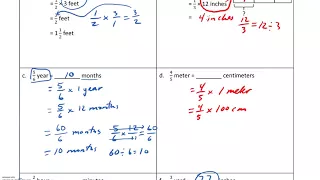 = 1/2 × 3 feet
= 3/2 feet
= 1 1/2 feet
1/2 × 3/1 = 3/2
12 inches
= 4 inches
12/3 = 12÷3
c. 5/6 year = 10 months
= 5/6 × 1 year
= 5/6 × 12 months
= 60/6 months
5/6 × 12/1 = 60/6
= 10 months 60÷6=10
d. 4/5 meter = ______ centimeters
= 4/5 × 1 meter
= 4/5 × 100 cm